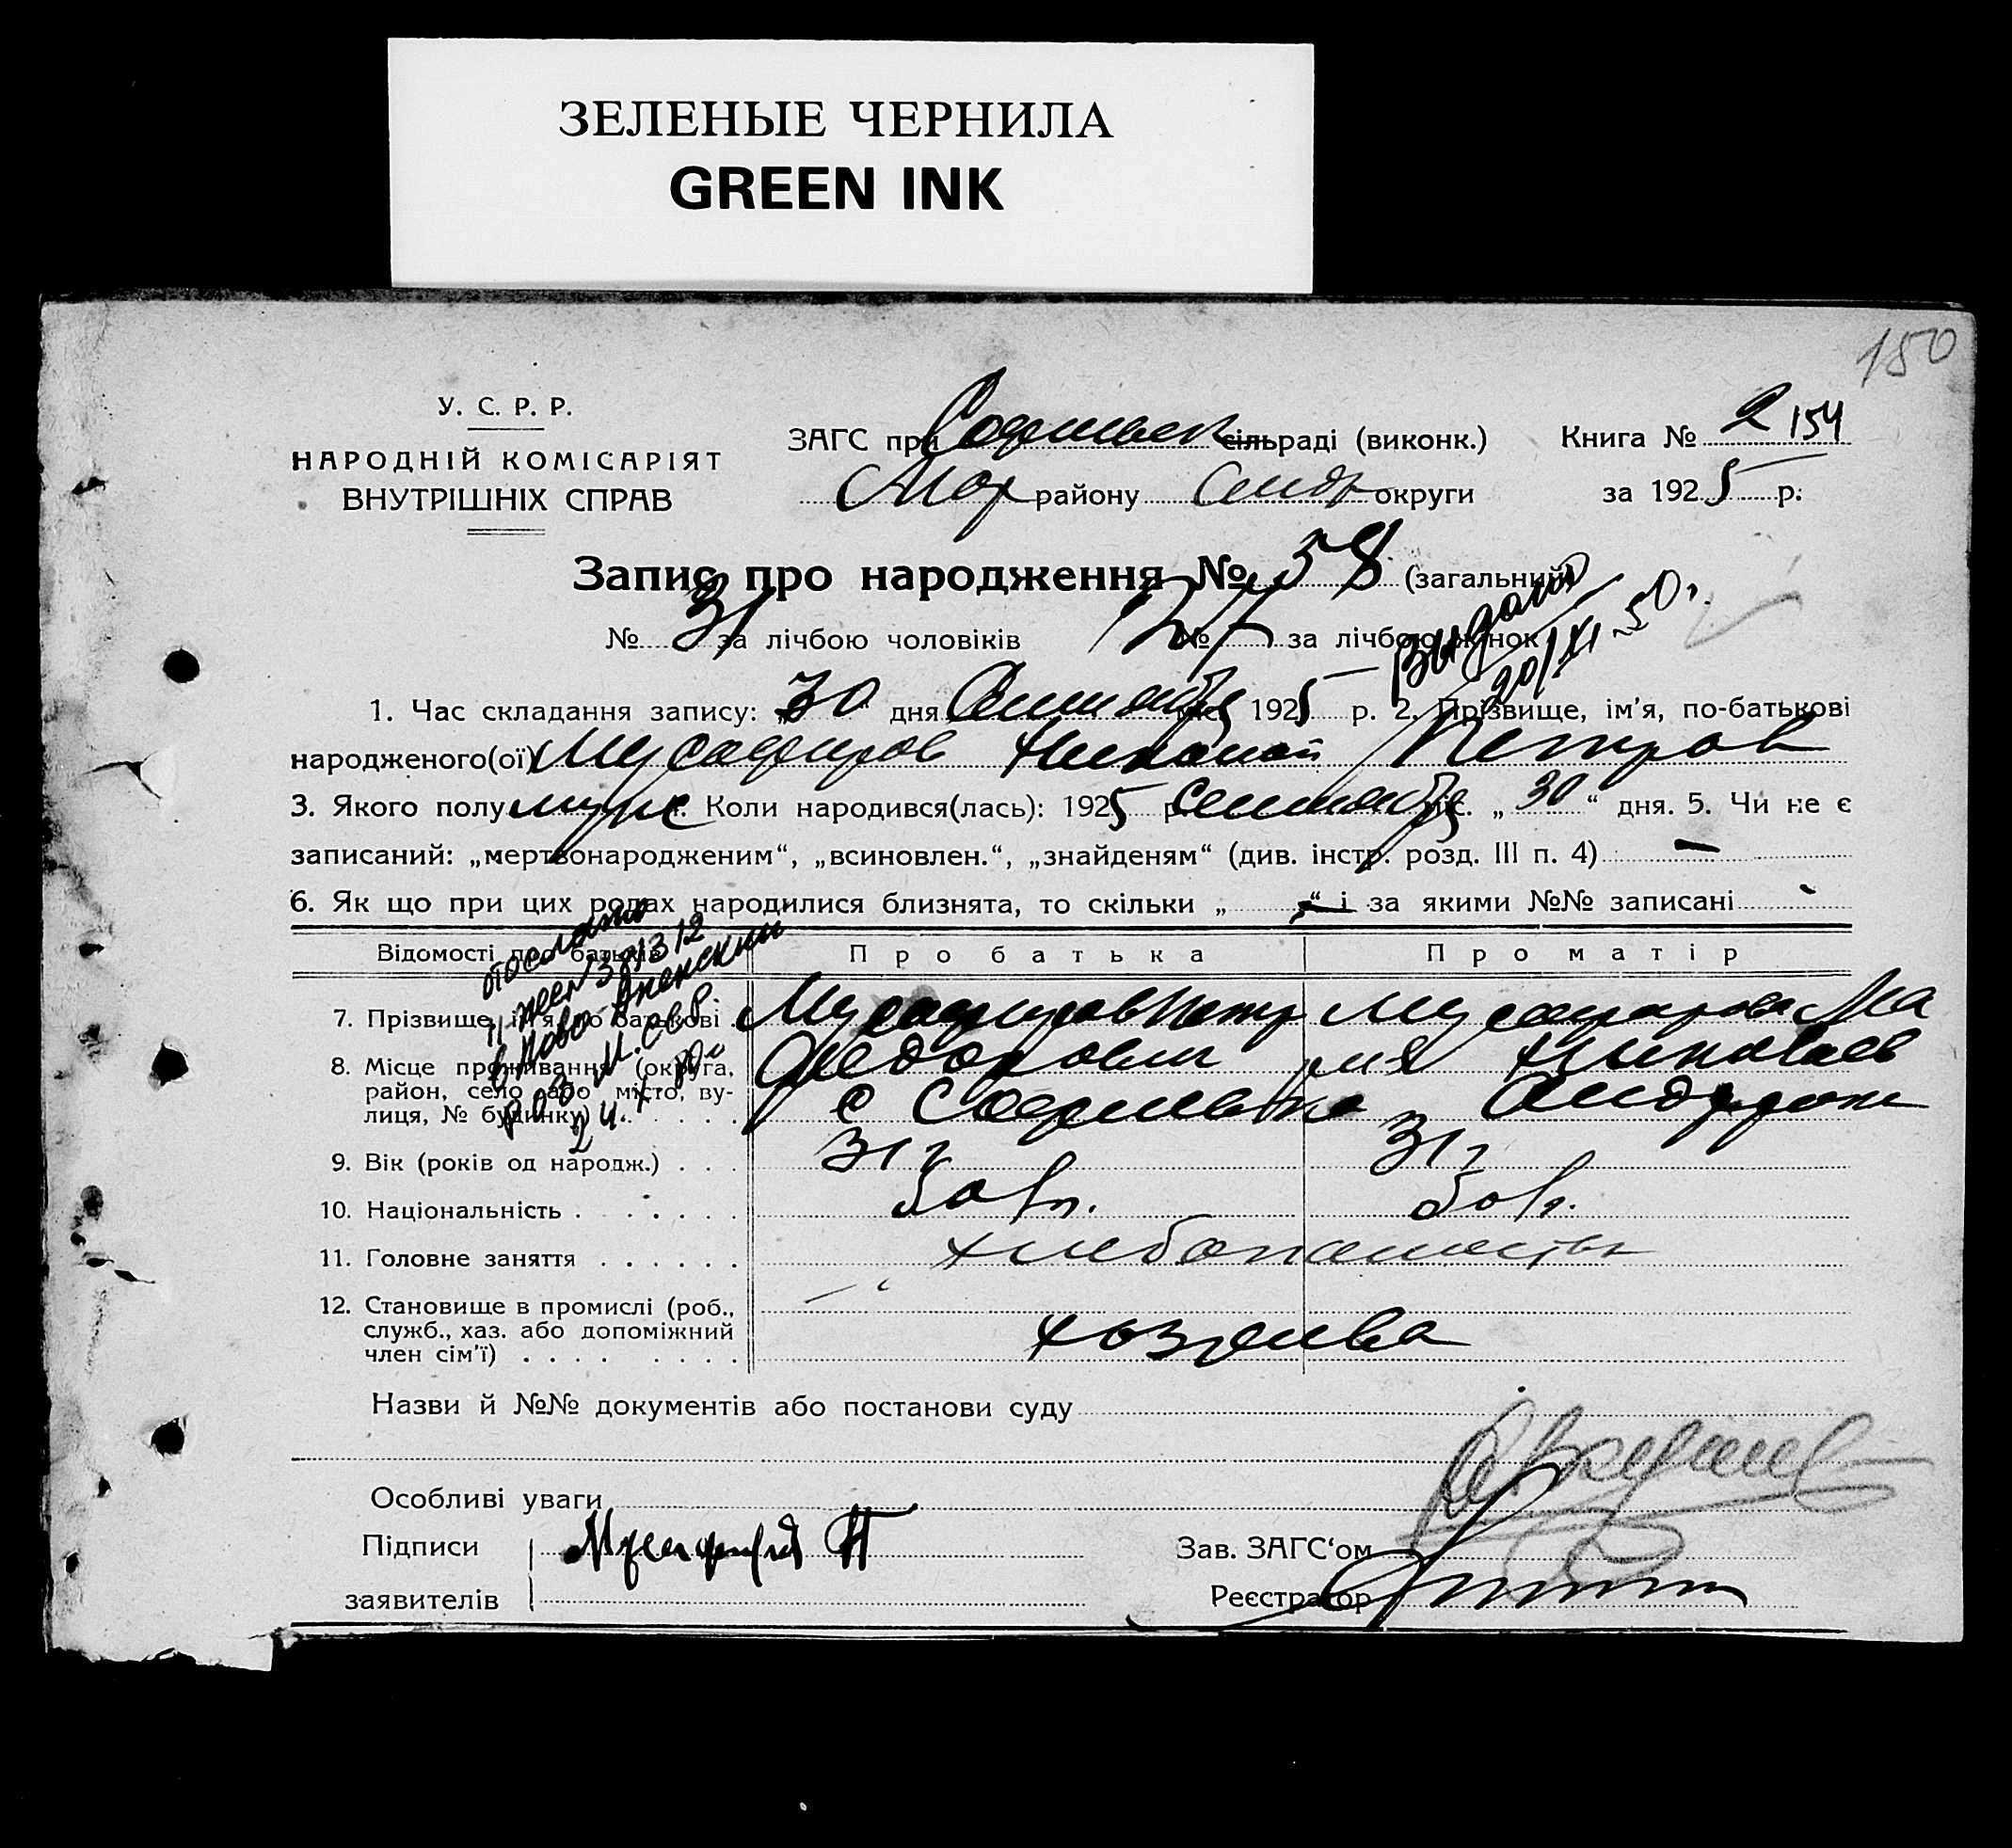 ЗЕЛЕНЫЕ ЧЕРНИЛА
GREEN INK
150
У. С. Р. Р.
НАРОДНІЙ КОМІСАРІЯТ
ВНУТРІШНІХ СПРАВ
ЗАГС при сільраді (виконк.)
району округи
Книга № 2 154
за 1925 р.
Запис про народження № 58 (загальний)
№ 31 за лічбою чоловіків № 27 за лічбою жінок
Выдано
20/XI-50г.
1. Час складання запису: „30 дня Сентября міс. 1925 р. 2. Прізвище, ім'я, по-батькові
народженого(ої) Мусафиров Николай Петров
3. Якого полу муж 4. Коли народився(лась): 1925 р. Сентября міс. „30“ дня. 5. Чи не є
записаний: „мертвонародженим“, „всиновлен.“, „знайденям“ (див. інстр. розд. III п. 4) —
6. Як що при цих родах народилися близнята, то скільки „ “ і за якими №№ записані
Відомості про батьків Про батька Про матір
послано
7. Прізвище, ім'я, по батькові Мусафиров Петр Мусафирова Ма
Федорович рия Николаев
8. Місце проживання (округа,
район, село або місто, ву-
лиця, № будинку) с Софиевка
9. Вік (років од народж.) 31 г 31 г
10. Національність болг. болг.
11. Головне заняття хлебопашество
12. Становище в промислі (роб.,
служб., хаз. або допоміжний
член сім'ї) хозяева
Назви й №№ документів або постанови суду
Особливі уваги
Підписи
заявителів
Зав. ЗАГС'ом
Реєстратор